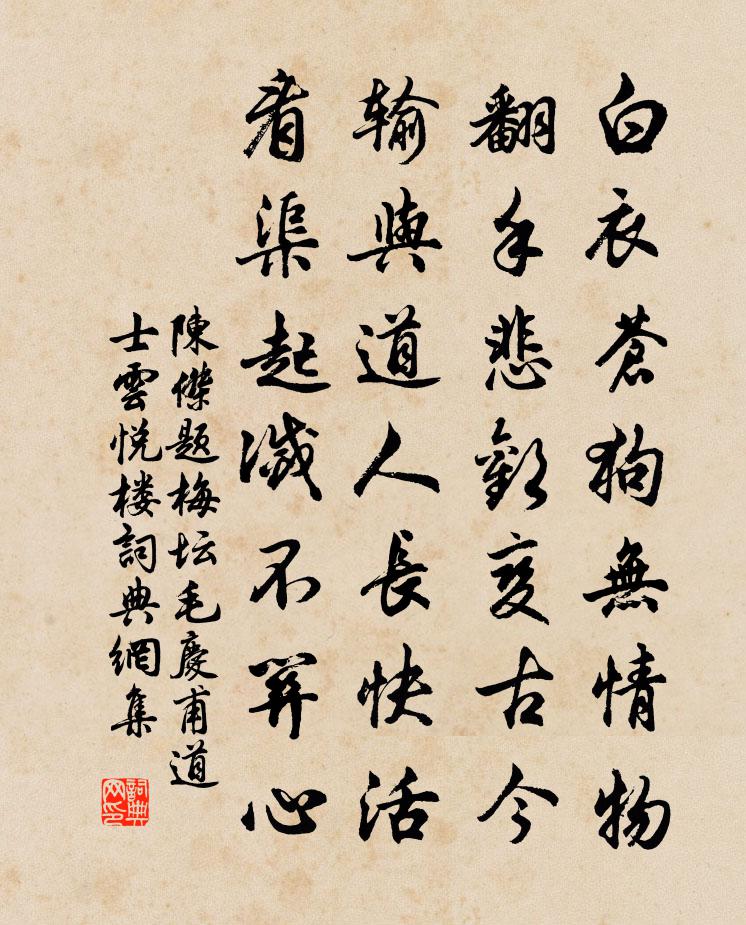 白衣蒼狗無情物
翻手悲歡变古今
輸與道人長快活
看渠起滅不関心
陳傑题梅坛毛慶甫道
士雲悦楼詞典網集
詞典
网印